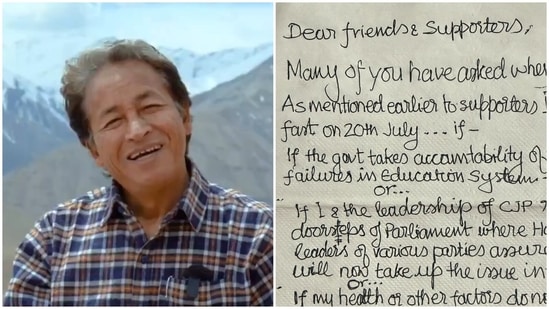 Dear friends & Supporters,
Many of you have asked when
As mentioned earlier to supporters I
fast on 20th July .... if –
If the govt takes accountability of
failures in Education System
or...
If I & the leadership of CJP
doorsteps of Parliament where
leaders of various parties assure
will now take up the issue in
Or...
If my health or other factors